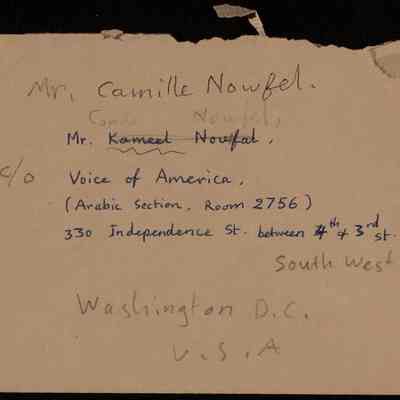 Mr. Camille Nowfel.
Nowfel,
Mr. Kameel Nowfal,
c/o Voice of America,
(Arabic Section, Room 2756)
330 Independence St. between 4th & 3rd St.
South West
Washington D.C.
U.S.A